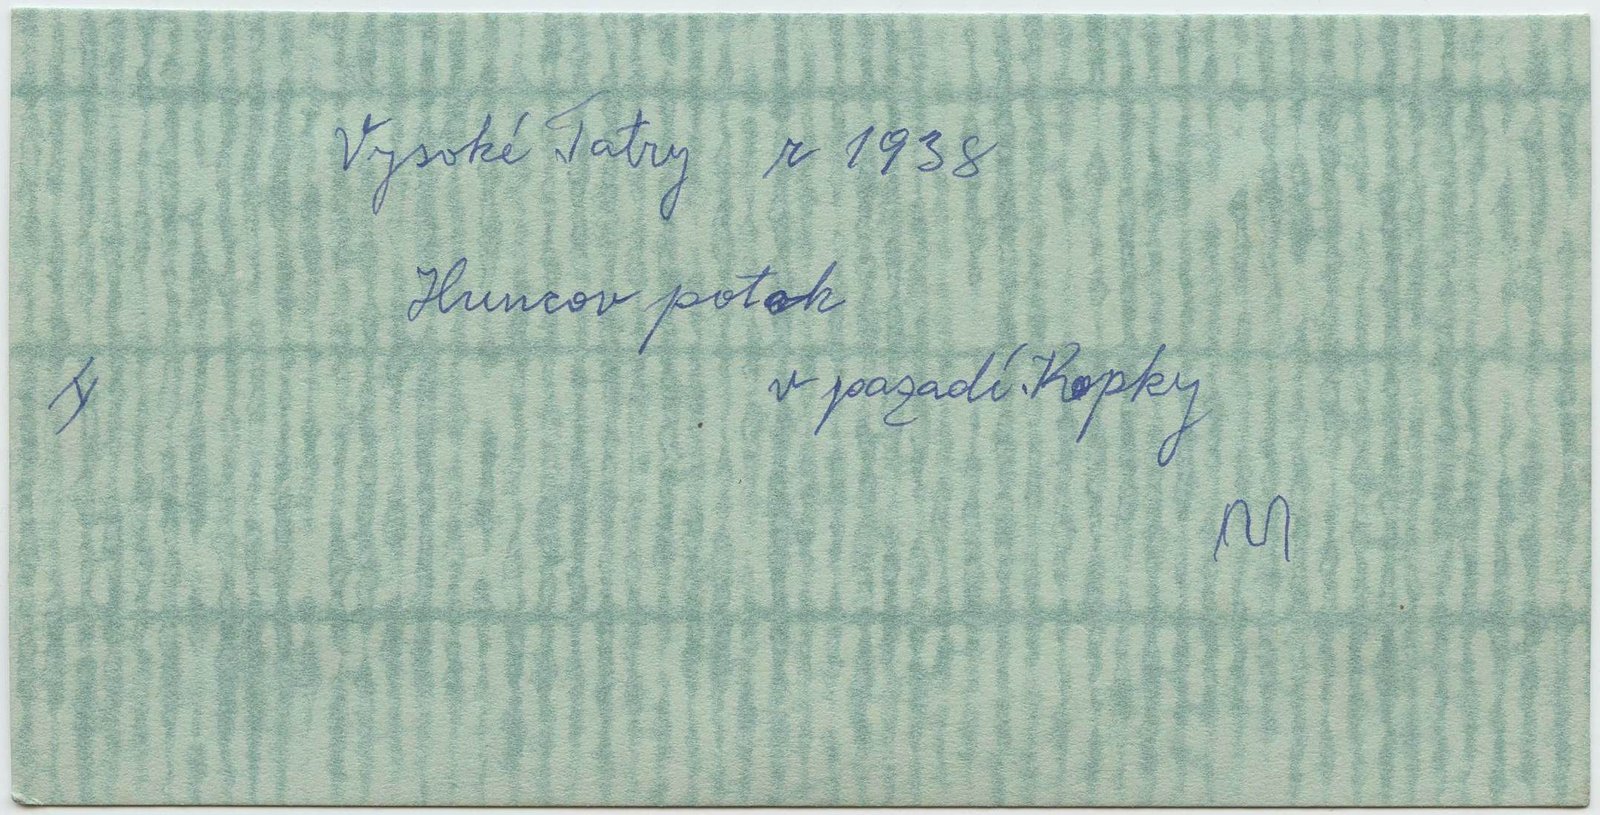 Vysoké Tatry r 1938
Huncov potok
v pozadí Kopky
M